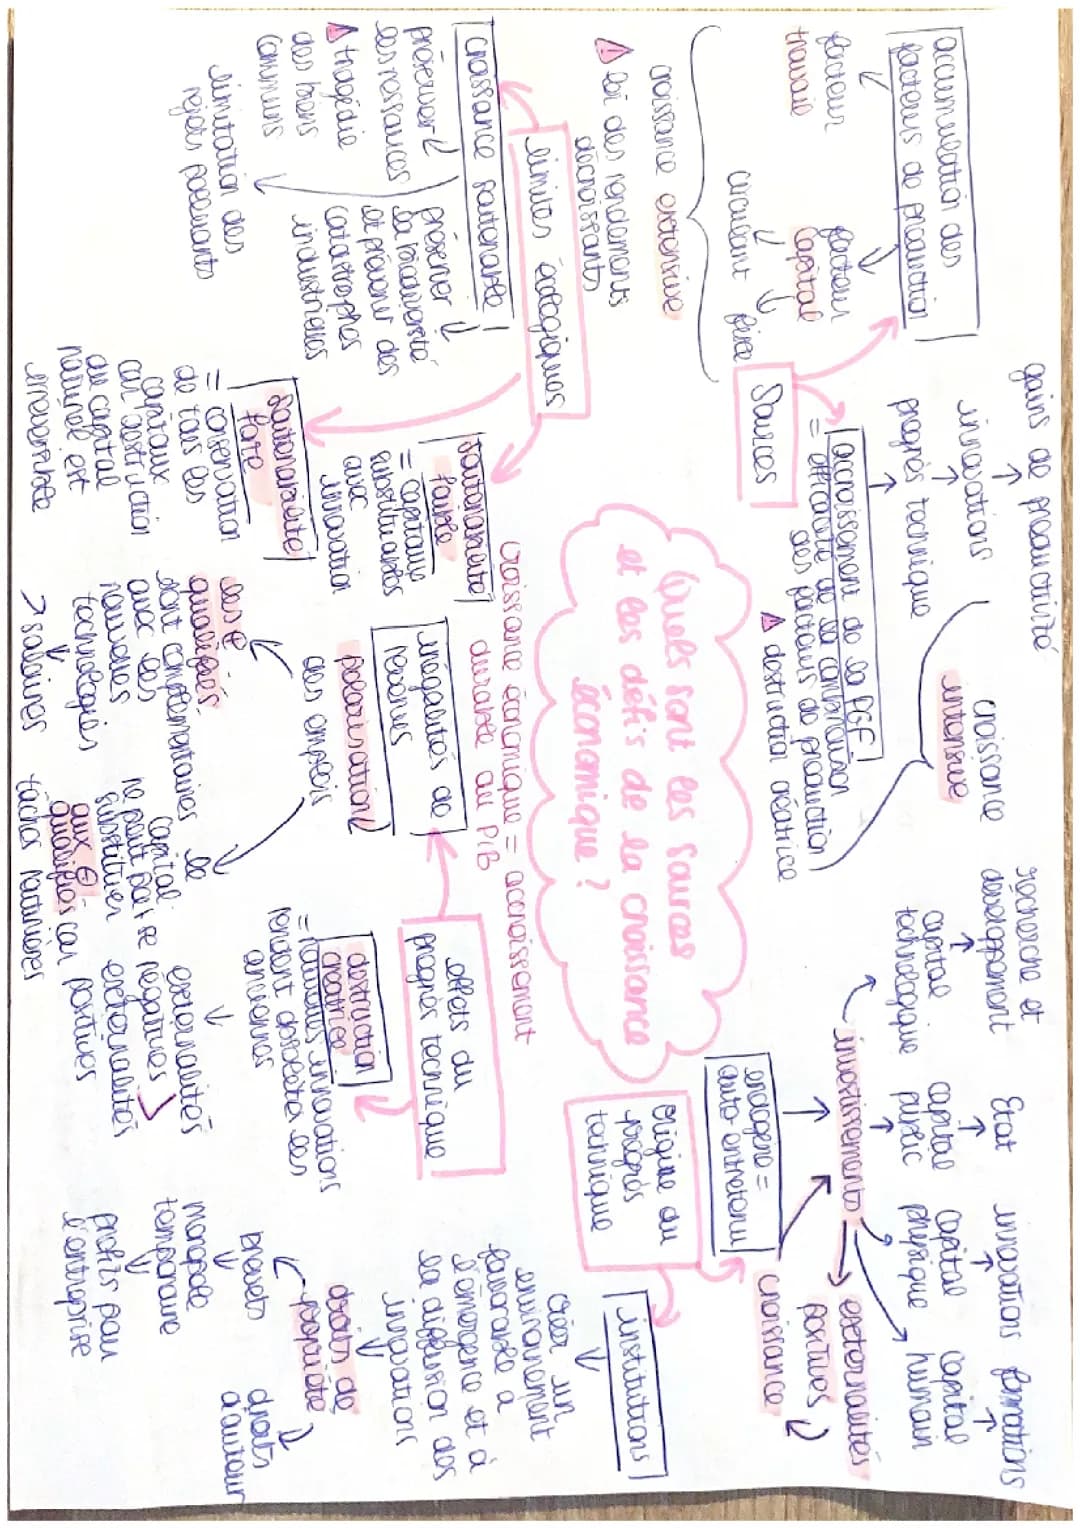 Quels sont les sources
et les défis de la croissance
économique ?
croissance économique = accroissement
durable du PIB
Sources
accumulation des
facteurs de production
facteur
travail
facteur
capital
circulant
fixe
croissance extensive
loi des rendements
décroissants
accroissement de la PGF
= efficacité de la combinaison
des facteurs de production
destruction créatrice
progrès technique
innovations
gains de productivité
croissance
intensive
Origine du
progrès
technique
endogène =
auto-entretenu
croissance
investissements
externalités
positives
capital
technologique
recherche et
développement
capital
public
Etat
capital
physique
innovations
capital
humain
formations
institutions
créer un
environnement
favorable à
l'émergence et à
la diffusion des
innovations
droits de
propriété
brevets
monopole
temporaire
profits pour
l'entreprise
droits
d'auteur
effets du
progrès technique
destruction
créatrice
= nouvelles innovations
rendent obsolètes les
anciennes
externalités
négatives >
externalités
positives
inégalités de
revenus
polarisation
des emplois
les ⊕
qualifiés
sont complémentaires
aux les
nouvelles
technologies
> salaires
le
capital
ne peut pas se
substituer
aux ⊖
qualifiés car
tâches routinières
limites écologiques
croissance soutenable
préserver
les ressources
tragédie
des biens
communs
préserver
la biodiversité
et prévenir des
catastrophes
industrielles
limitation des
rejets polluants
soutenabilité
faible
= capitaux
substituables
aux
innovation
soutenabilité
forte
= conservation
de tous les
capitaux
car destruction
du capital
naturel est
irréversible